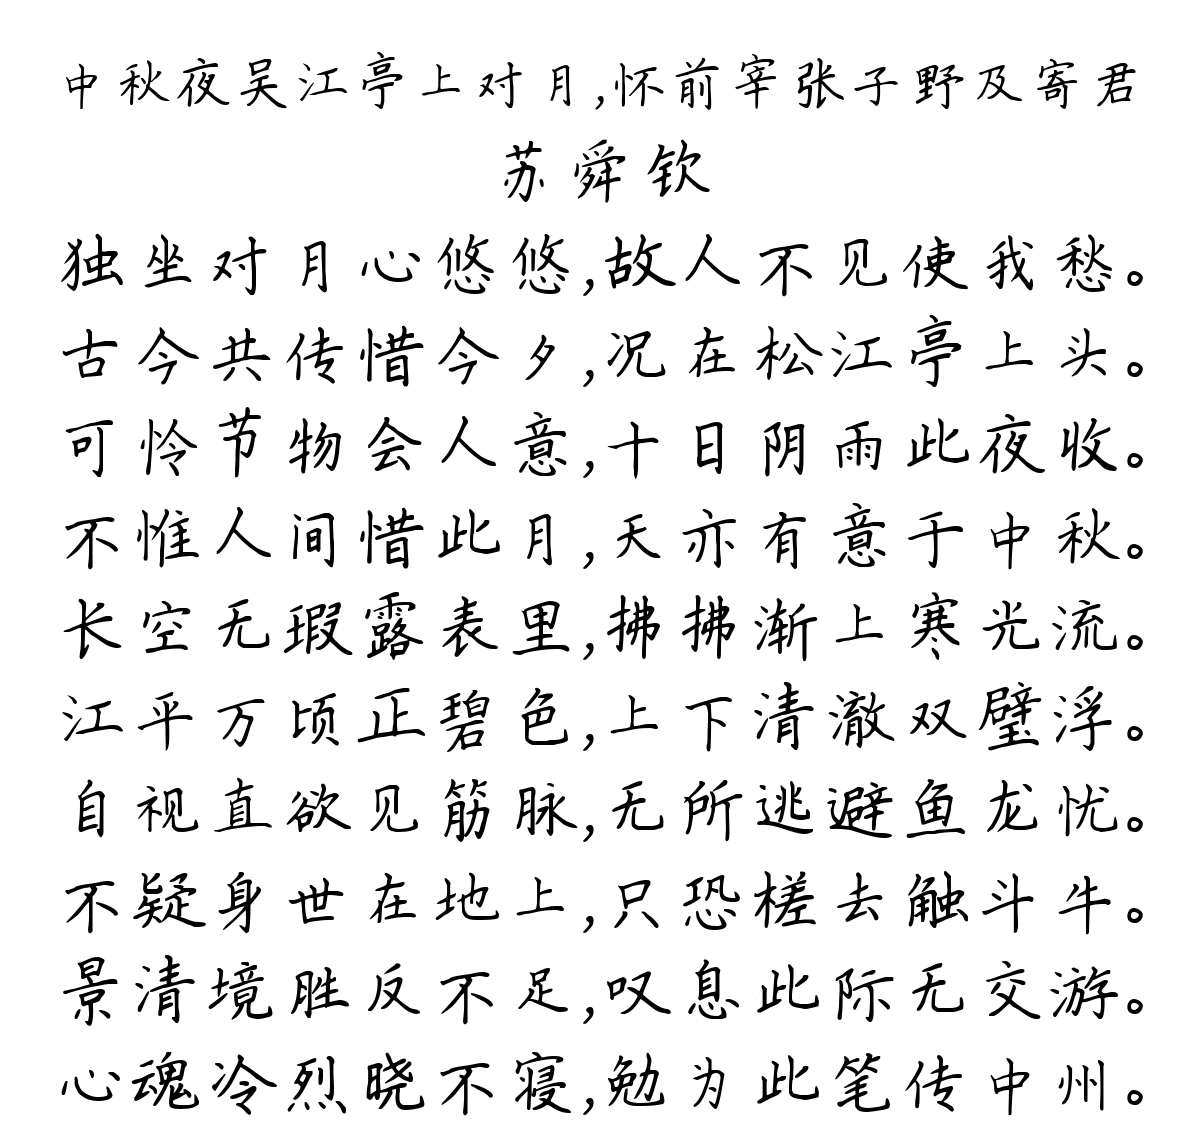 中秋夜吴江亭上对月,怀前宰张子野及寄君
苏舜钦
独坐对月心悠悠,故人不见使我愁。
古今共传惜今夕,况在松江亭上头。
可怜节物会人意,十日阴雨此夜收。
不惟人间惜此月,天亦有意于中秋。
长空无瑕露表里,拂拂渐上寒光流。
江平万顷正碧色,上下清澈双璧浮。
自视直欲见筋脉,无所逃避鱼龙忧。
不疑身世在地上,只恐槎去触斗牛。
景清境胜反不足,叹息此际无交游。
心魂冷烈晓不寝,勉为此笔传中州。